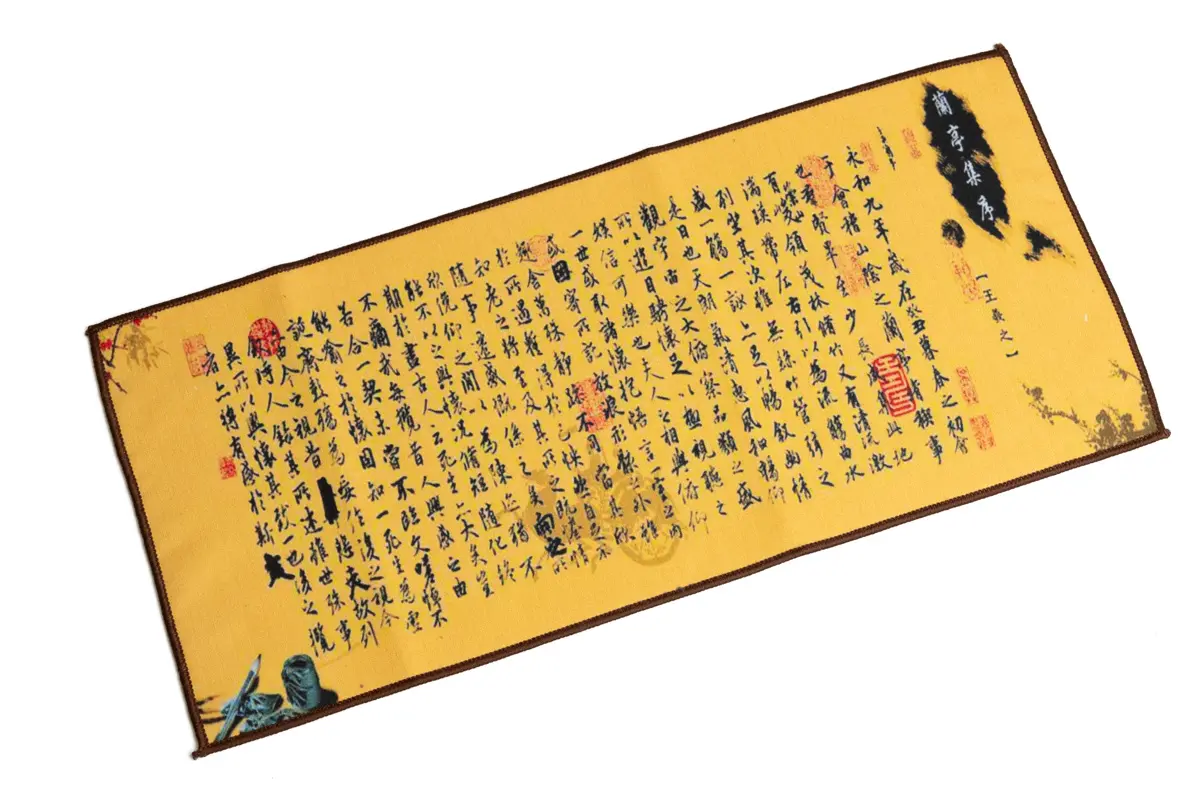 蘭亭集序
【王羲之】
永和九年歲在癸丑暮春之初會
于會稽山陰之蘭亭脩禊事
也羣賢畢至少長咸集此地
有崇山峻領茂林脩竹又有清流激
湍暎帶左右引以為流觴曲水
列坐其次雖無絲竹管弦之
盛一觴一詠亦足以暢敘幽情
是日也天朗氣清惠風和暢仰
觀宇宙之大俯察品類之盛
所以遊目騁懷足以極視聽之
娛信可樂也夫人之相與俯仰
一世或取諸懷抱悟言一室之內
或因寄所託放浪形骸之外雖
趣舍萬殊靜躁不同當其欣
於所遇蹔得於己快然自足不
知老之將至及其所之既惓情
隨事遷感慨係之矣向之所
欣俛仰之閒以為陳迹猶不
能不以之興懷況脩短隨化終
期於盡古人云死生亦大矣豈
不痛哉每攬昔人興感之由
若合一契未嘗不臨文嗟悼不
能喻之於懷固知一死生為虛
誕齊彭殤為妄作後之視今
亦由今之視昔悲夫故列
敘時人錄其所述雖世殊事
異所以興懷其致一也後之攬
者亦將有感於斯文